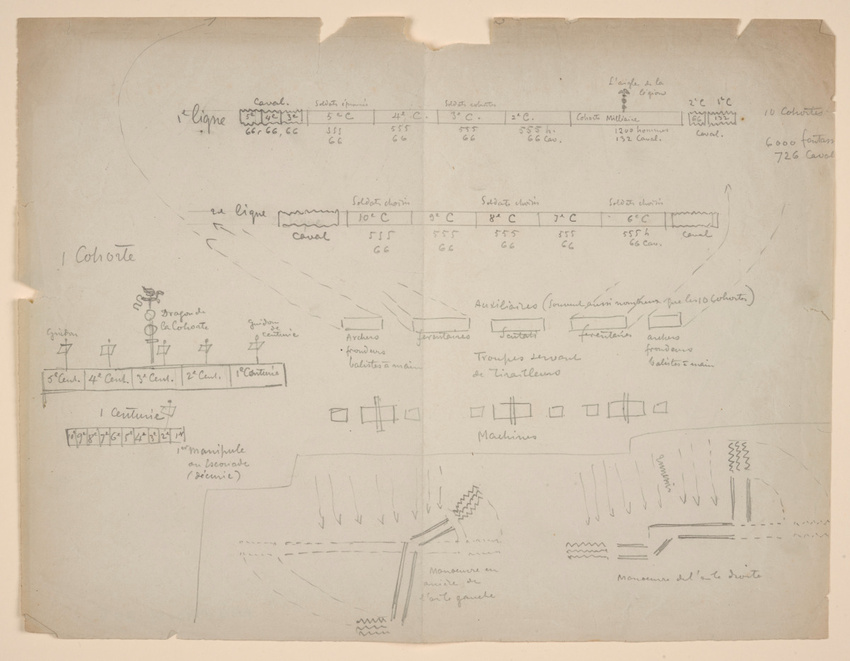 L'aigle de la légion
Caval. Soldats éprouvés Soldats choisis 2e C 1e C
1e ligne 5e 4e 3e 5e C 4e C. 3e C 2e C. Cohorte Milliaire 66 132 10 Cohortes
66, 66, 66 555 555 555 555 h. 1200 hommes Caval.
66 66 66 66 Cav. 132 Caval.
6000 fantass
726 Caval
Soldats choisis Soldats choisis Soldats choisis
2e ligne 10e C 9e C 8e C 7e C 6e C
Caval 555 555 555 555 555 h Caval
66 66 66 66 66 Cav.
1 Cohorte
Auxiliaires (souvent aussi nombreux que les 10 Cohortes)
Dragon de
la Cohorte
Guidon
guidon
de
centurie
Archers ferentaires ferentaires archers
frondeurs frondeurs
balistes à main balistes à main
Troupes servant
de Tirailleurs
5e Cent. 4e Cent. 3e Cent. 2e Cent. 1e Centurie
1 Centurie
10e 9e 8e 7e 6e 5e 4e 3e 2e 1er
1er Manipule
ou Escouade
(décurie)
Machines
Ennemis
Manoeuvre en
arrière de
l'aile gauche
Manoeuvre de l'aile droite